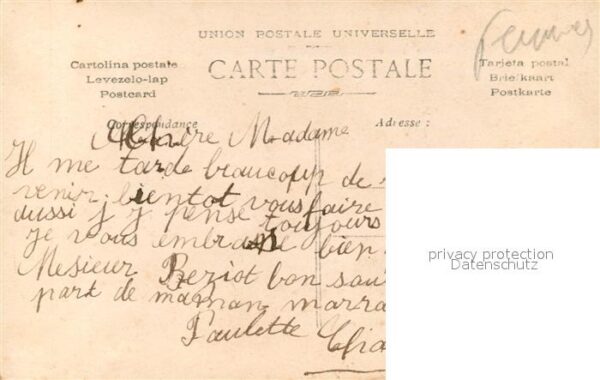 UNION POSTALE UNIVERSELLE
CARTE POSTALE
Cartolina postale
Levelezo-lap
Postcard
Tarjeta postal
Briefkaart
Postkarte
Femmes
Correspondance
Adresse :
Chère Madame
Il me tarde beaucoup de
venir bientot vous faire
aussi j y pense toujours
je vous embrasse bien
Mesieur Beziot bon
part de maman marra
Paulette
privacy protection
Datenschutz